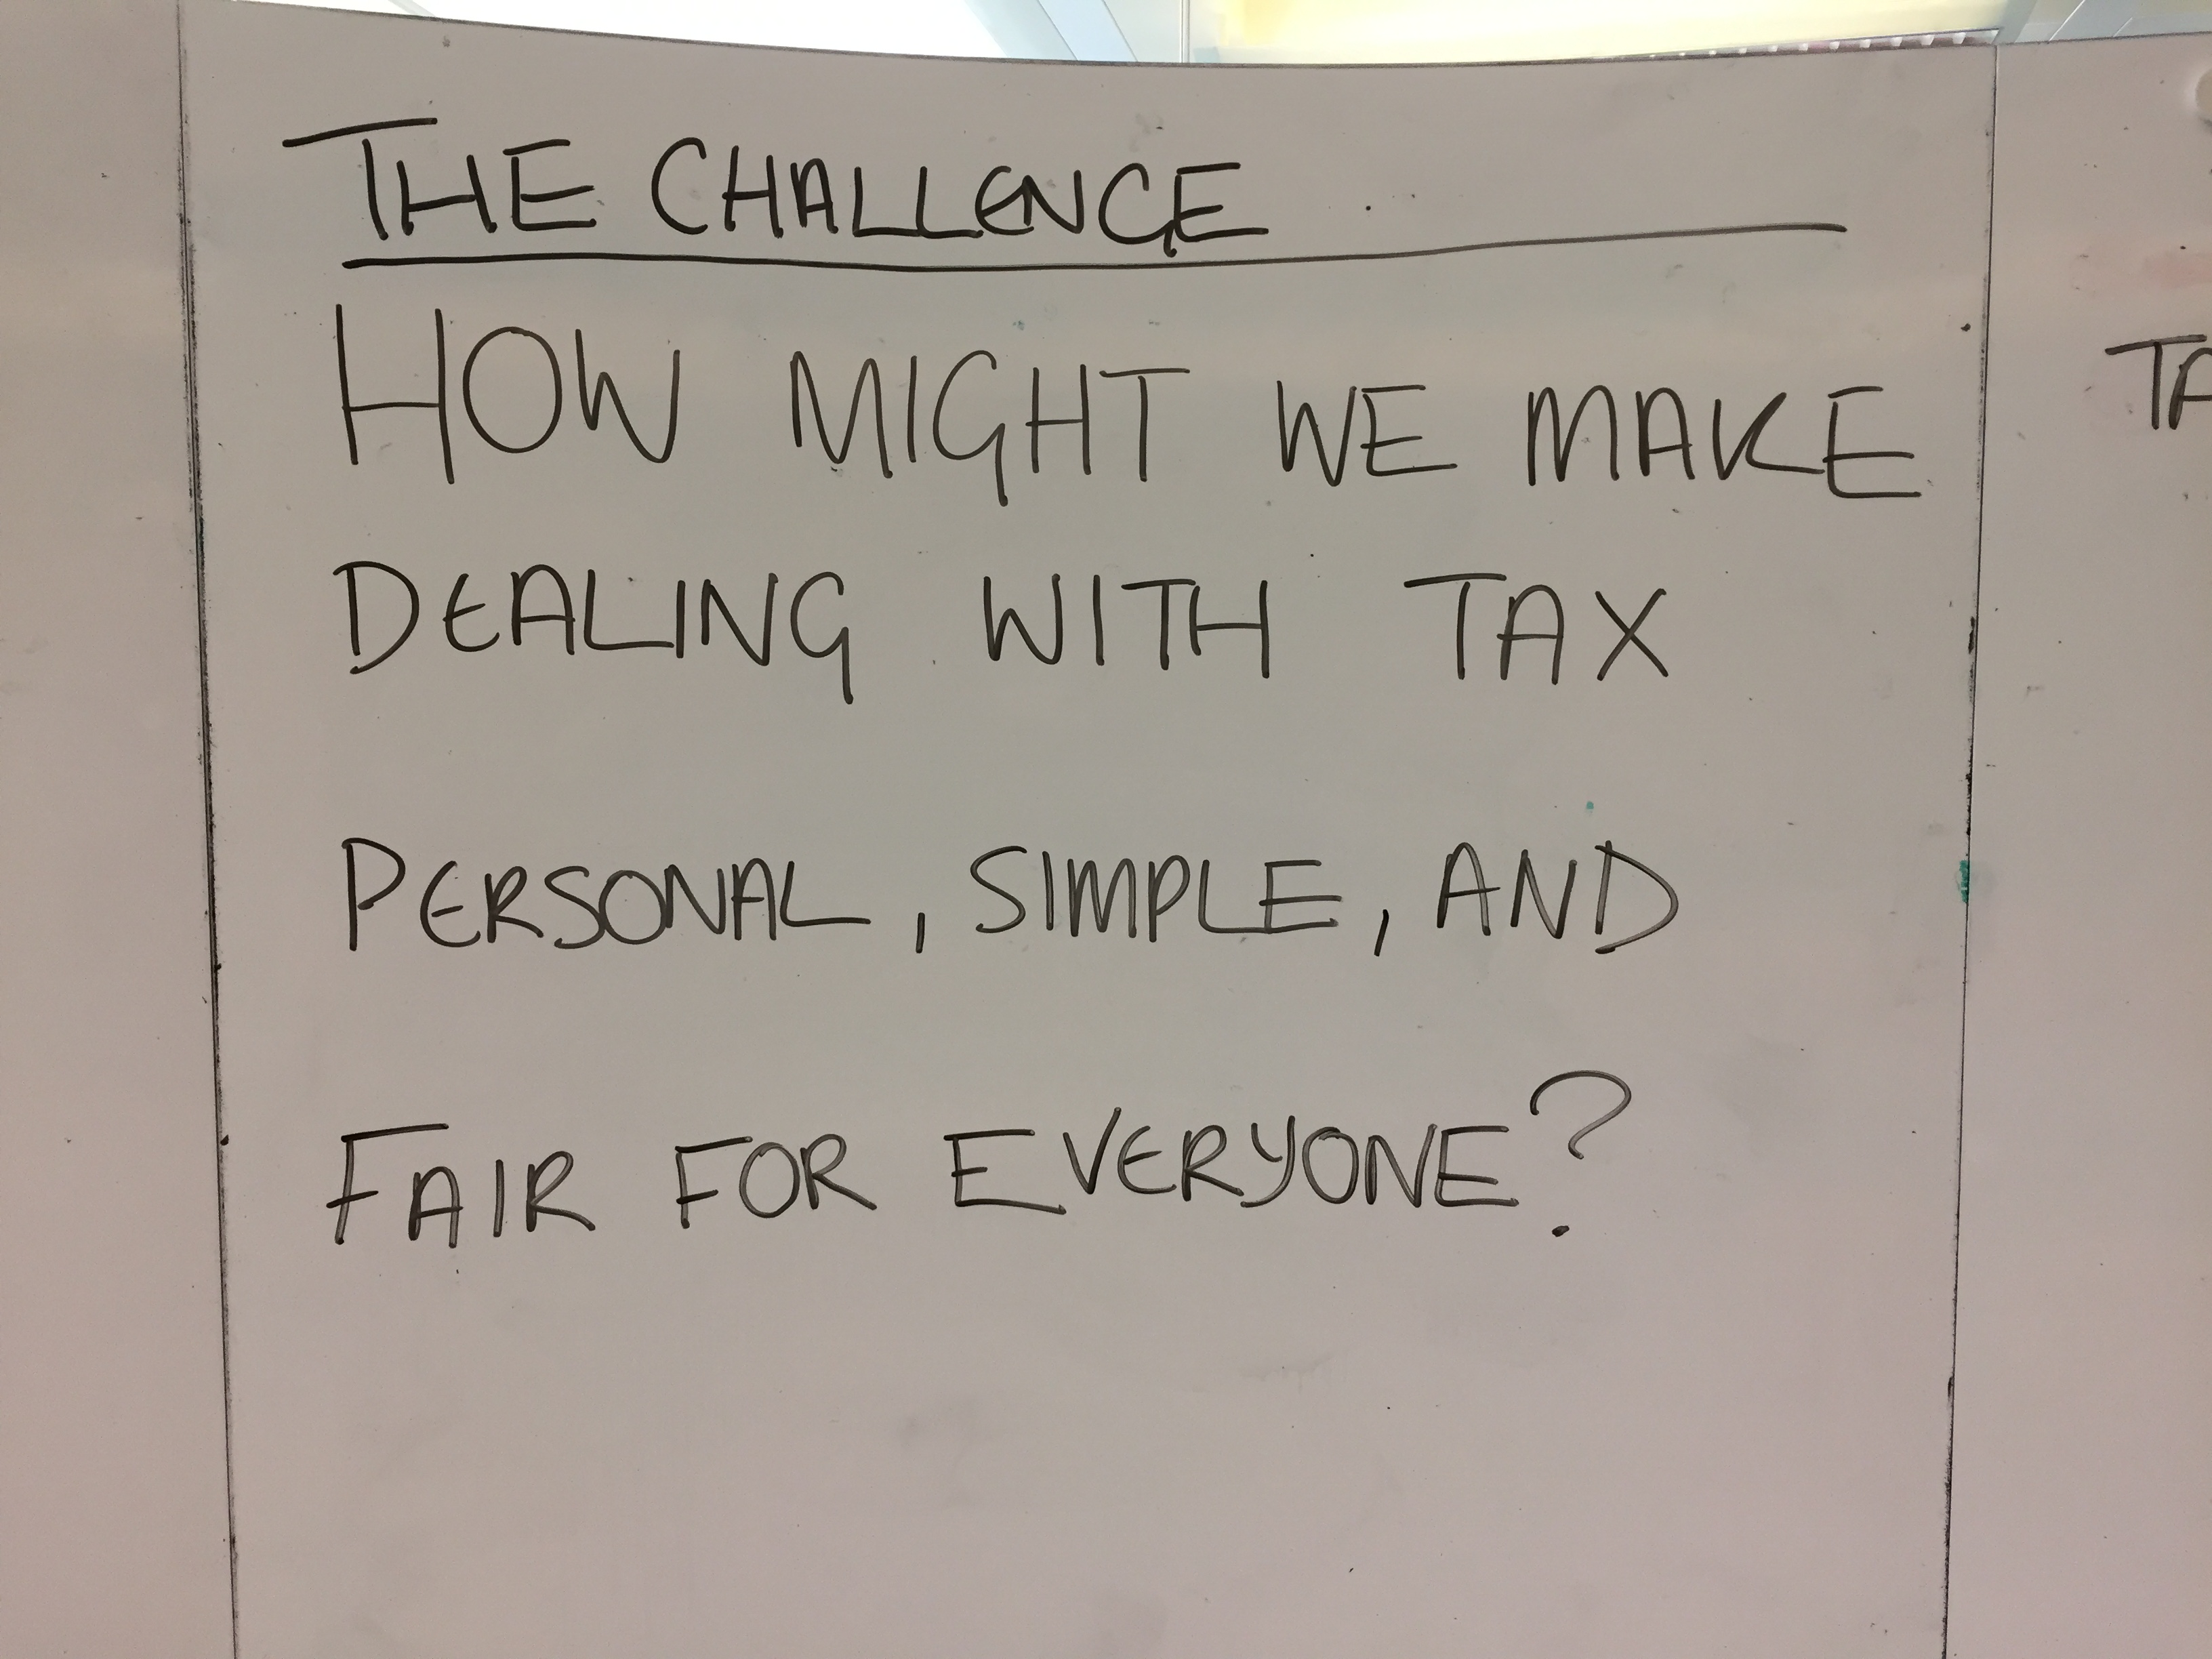 THE CHALLENGE
HOW MIGHT WE MAKE
DEALING WITH TAX
PERSONAL, SIMPLE, AND
FAIR FOR EVERYONE?